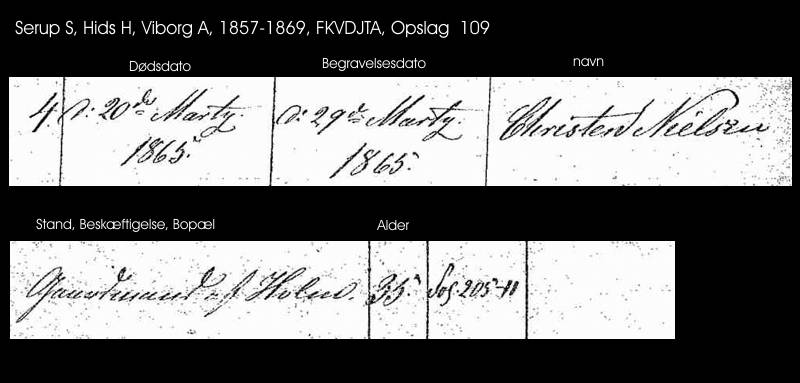 Serup S, Hids H, Viborg A, 1857-1869, FKVDJTA, Opslag 109
Dødsdato Begravelsesdato navn
4. d: 20de Marty. d: 29de Marty. Christen Nielsen
1865. 1865.
Stand, Beskæftigelse, Bopæl Alder
Gaardmand af Holm. 35. 205-11